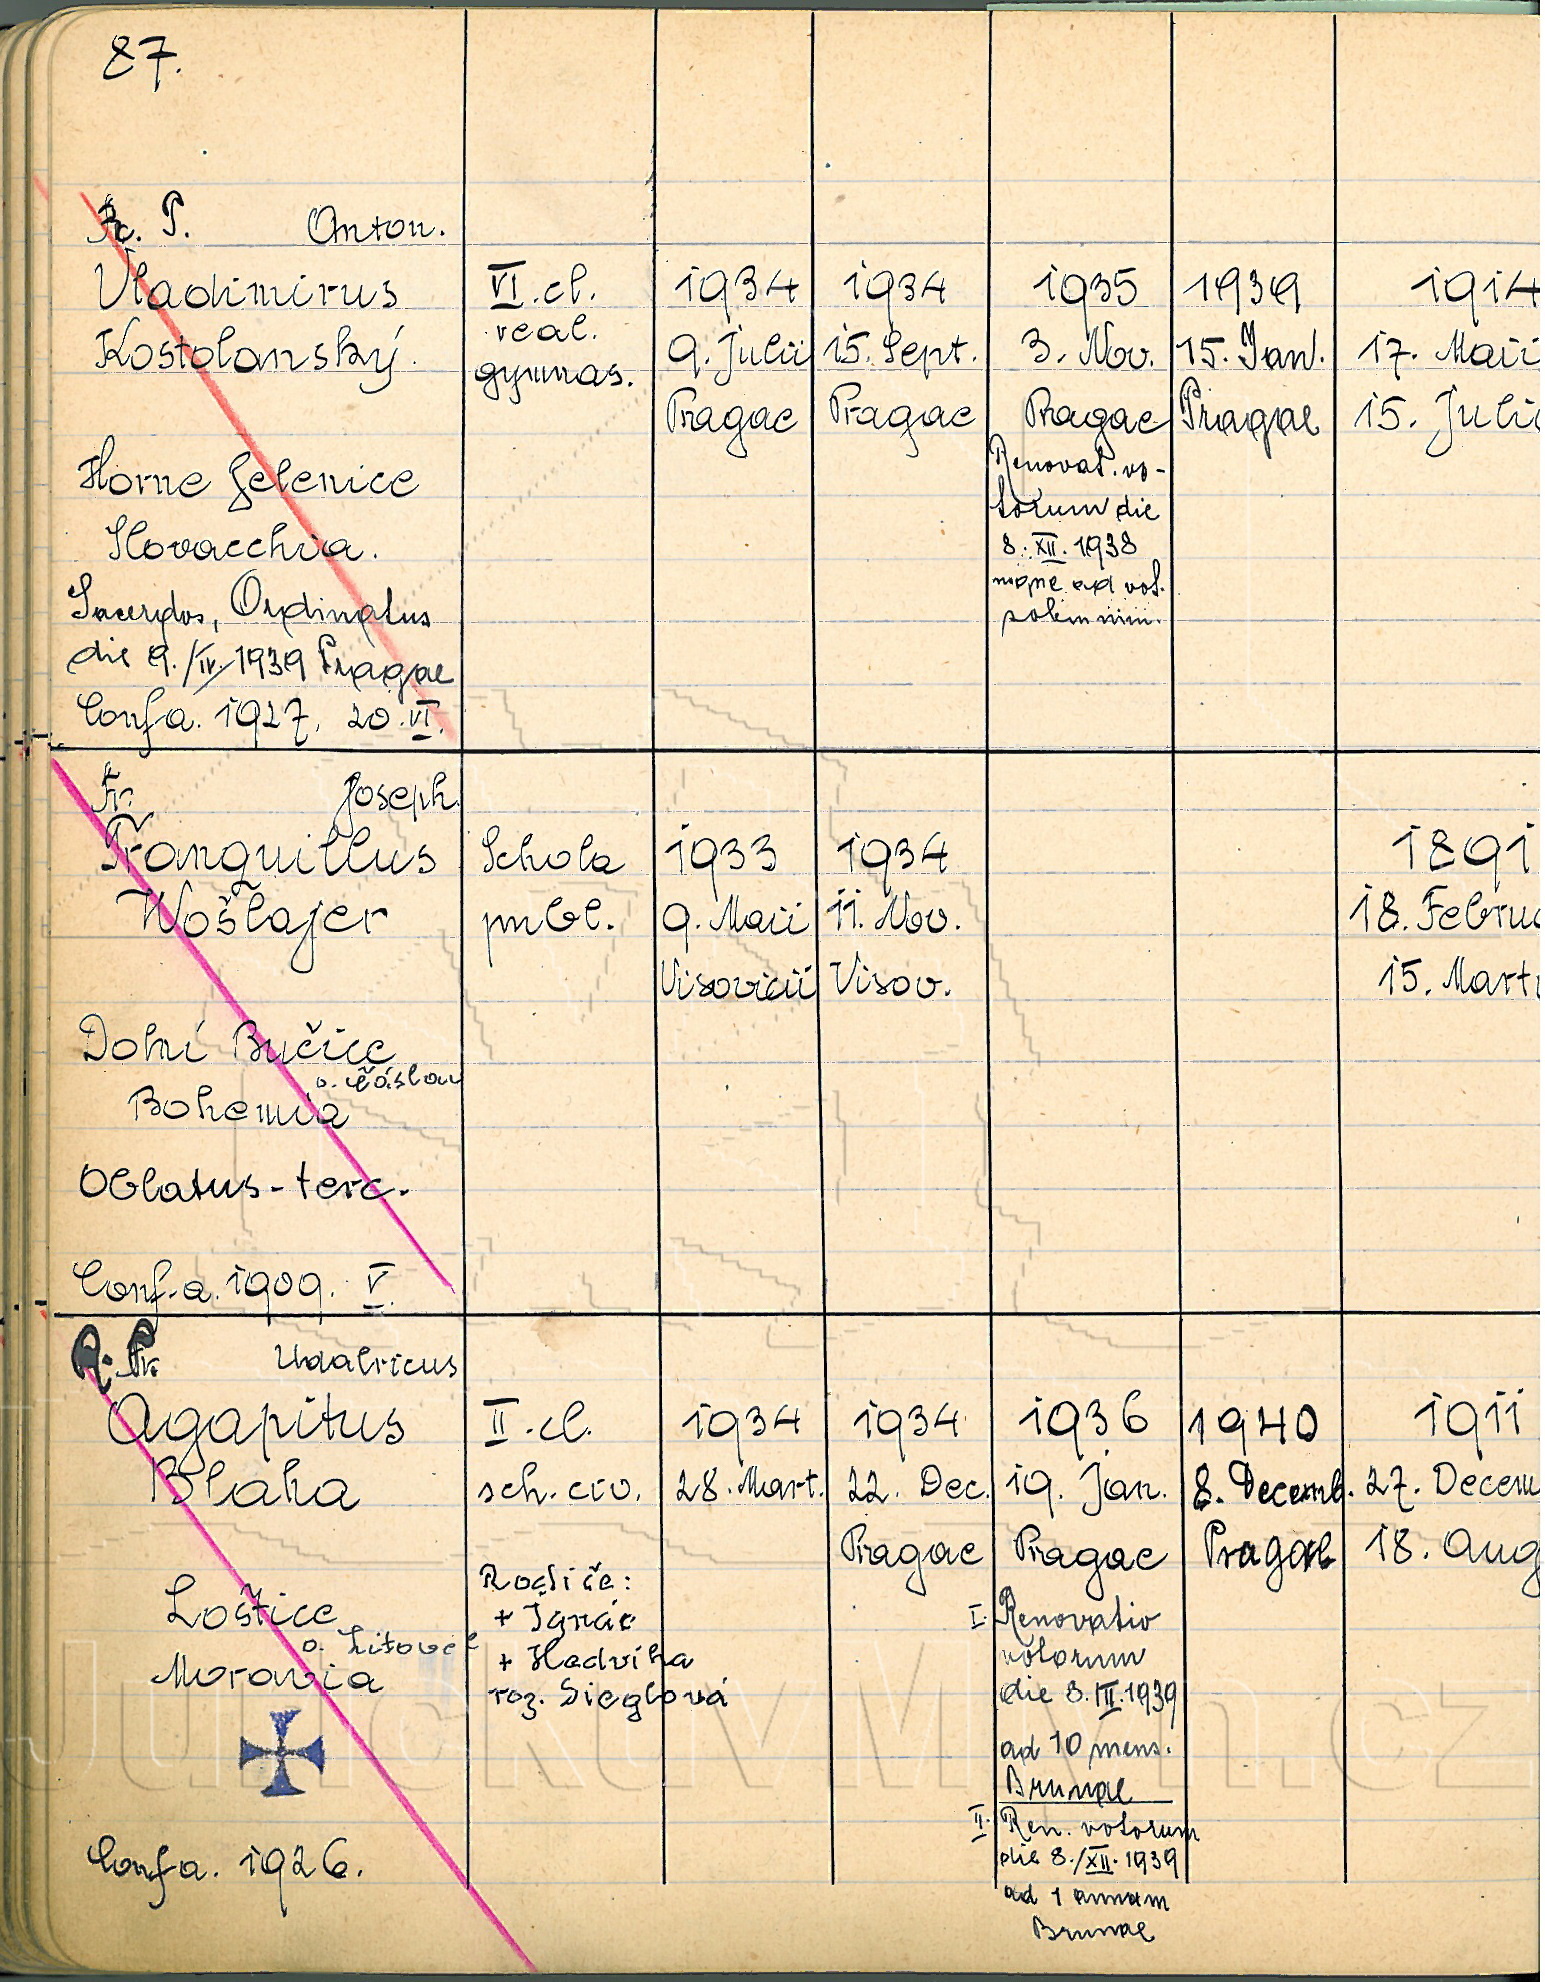 87.
P. Anton.
Vladimirus VI. cl. 1934 1934 1935 1939 1914
Kostolanský. real. 9. Julii 15. Sept. 3. Nov. 15. Jan. 17. Maii
gymnas. Pragae Pragae Pragae Pragae 15. Julii
Renovat. vo-
Horne Jelenice torum die
Slovacchia. 8. XII. 1938
mqne ad vot.
Sacerdos, Ordinatus solemnim.
die 9./IV. 1939 Pragae
Confa. 1927. 20. VI.
Fr. Joseph
Tranquillus Schola 1933 1934 1891
Wošlajer publ. 9. Maii 11. Nov. 18. Februa
Visovicii Visov. 15. Marti
Dolní Bučice
o. Čáslav
Bohemia
Oblatus-terc.
Conf-a. 1909. V.
Fr. Udalricus
Agapitus II. cl. 1934 1934 1936 1940 1911
Blaha sch. civ. 28. Mart. 22. Dec. 19. Jan. 8. Decemb. 27. Decem
Pragae Pragae Pragae 18. Aug
Rodiče:
Loštice + Ignác I. Renovatio
o. Litovel + Hedvika votorum
Moravia roz. Sieglová die 8. III. 1939
ad 10 mens.
Brunae
II. Ren. votorum
Confa. 1926. die 8./XII. 1939
ad 1 annum
Brunae
JurickuvMlyn.cz